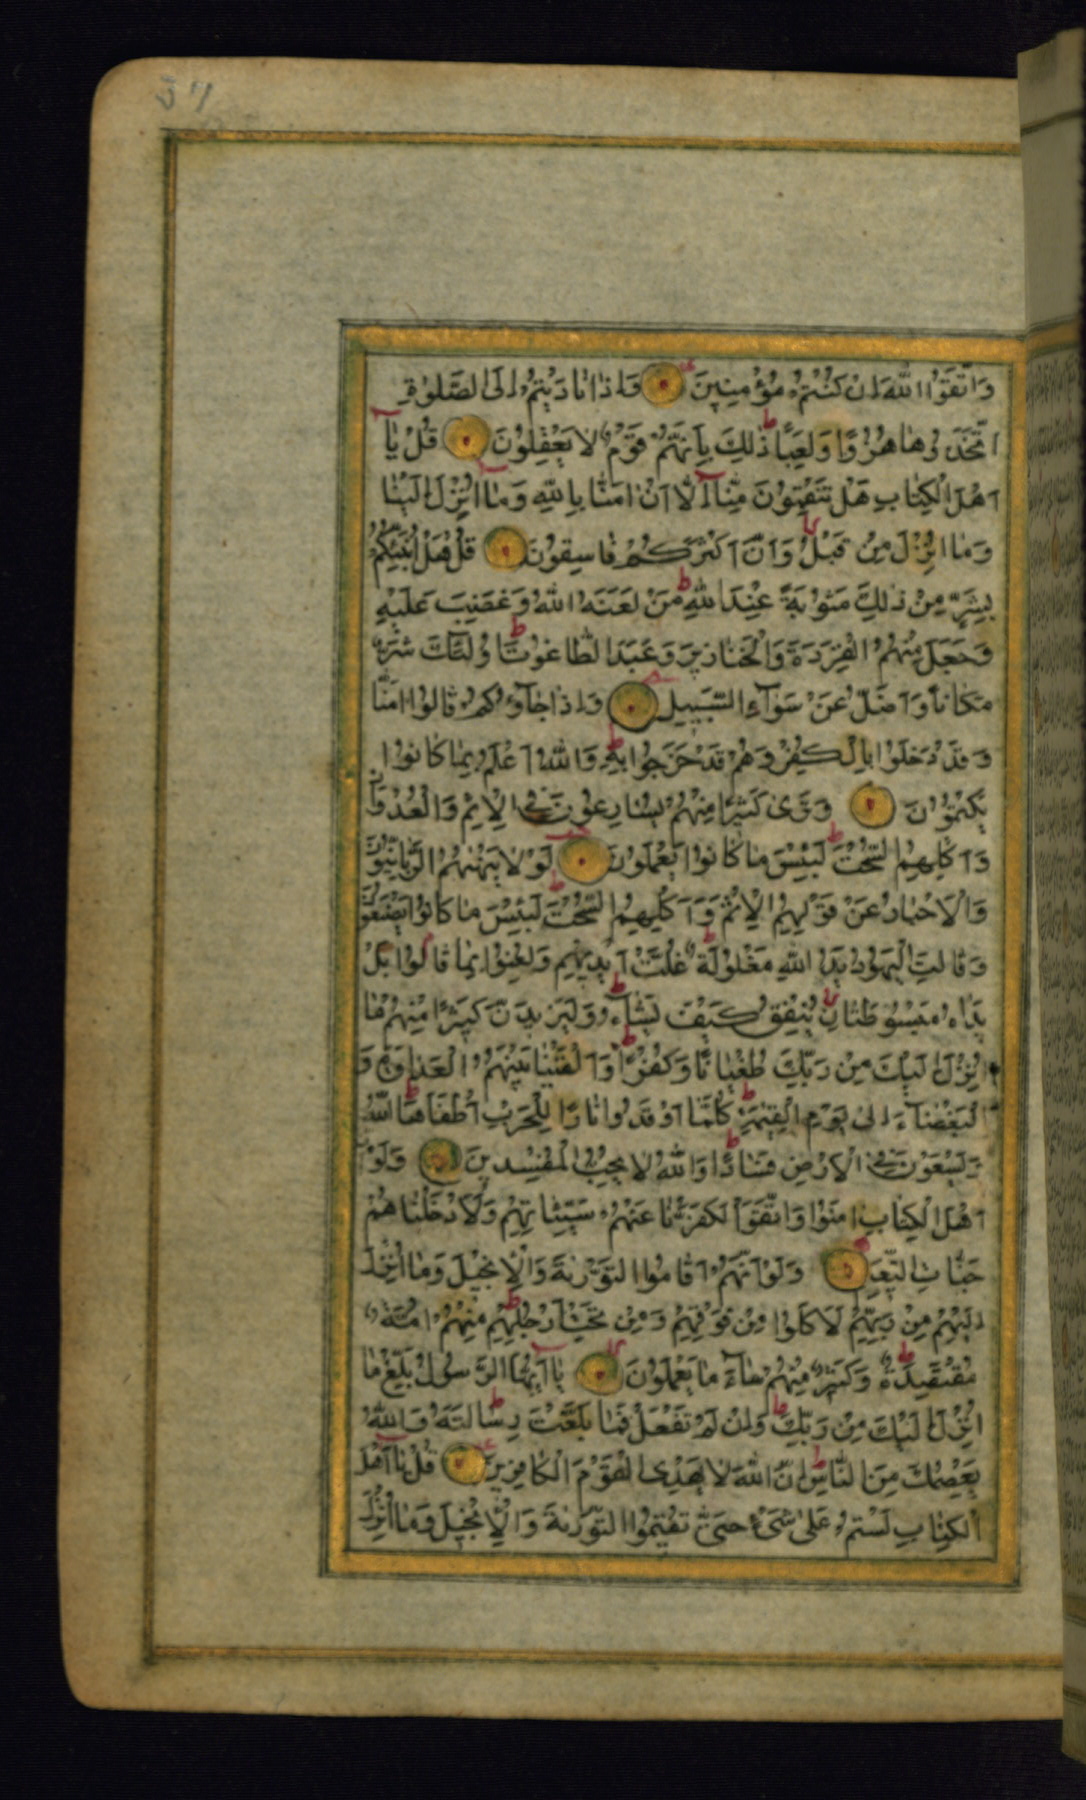 وَاتَّقَوُا اللّٰهَ اِنْ كُنْتُمْ مُؤْمِنِينَ وَاِذَا نَادَيْتُمْ اِلَى الصَّلٰوةِ
اتَّخَذُوهَا هُزُوًا وَلَعِبًا ذٰلِكَ بِاَنَّهُمْ قَوْمٌ لَا يَعْقِلُونَ قُلْ يَا
اَهْلَ الْكِتَابِ هَلْ تَنْقِمُونَ مِنَّا اِلَّا اَنْ اٰمَنَّا بِاللّٰهِ وَمَا اُنْزِلَ اِلَيْنَا
وَمَا اُنْزِلَ مِنْ قَبْلُ وَاَنَّ اَكْثَرَكُمْ فَاسِقُونَ قُلْ هَلْ اُنَبِّئُكُمْ
بِشَرٍّ مِنْ ذٰلِكَ مَثُوبَةً عِنْدَ اللّٰهِ مَنْ لَعَنَهُ اللّٰهُ وَغَضِبَ عَلَيْهِ
وَجَعَلَ مِنْهُمُ الْقِرَدَةَ وَالْخَنَازِيرَ وَعَبَدَ الطَّاغُوتَ اُولٰئِكَ شَرٌّ
مَكَانًا وَاَضَلُّ عَنْ سَوَآءِ السَّبِيلِ وَاِذَا جَآؤُكُمْ قَالُوا اٰمَنَّا
وَقَدْ دَخَلُوا بِالْكُفْرِ وَهُمْ قَدْ خَرَجُوا بِهِ وَاللّٰهُ اَعْلَمُ بِمَا كَانُوا
يَكْتُمُونَ وَتَرٰى كَثِيرًا مِنْهُمْ يُسَارِعُونَ فِى الْاِثْمِ وَالْعُدْوَانِ
وَاَكْلِهِمُ السُّحْتَ لَبِئْسَ مَا كَانُوا يَعْمَلُونَ لَوْلَا يَنْهٰهُمُ الرَّبَّانِيُّونَ
وَالْاَحْبَارُ عَنْ قَوْلِهِمُ الْاِثْمَ وَاَكْلِهِمُ السُّحْتَ لَبِئْسَ مَا كَانُوا يَصْنَعُونَ
وَقَالَتِ الْيَهُودُ يَدُ اللّٰهِ مَغْلُولَةٌ غُلَّتْ اَيْدِيهِمْ وَلُعِنُوا بِمَا قَالُوا بَلْ
يَدَاهُ مَبْسُوطَتَانِ يُنْفِقُ كَيْفَ يَشَآءُ وَلَيَزِيدَنَّ كَثِيرًا مِنْهُمْ مَا
اُنْزِلَ اِلَيْكَ مِنْ رَبِّكَ طُغْيَانًا وَكُفْرًا وَاَلْقَيْنَا بَيْنَهُمُ الْعَدَاوَةَ وَ
الْبَغْضَآءَ اِلٰى يَوْمِ الْقِيٰمَةِ كُلَّمَا اَوْقَدُوا نَارًا لِلْحَرْبِ اَطْفَاَهَا اللّٰهُ
وَيَسْعَوْنَ فِى الْاَرْضِ فَسَادًا وَاللّٰهُ لَا يُحِبُّ الْمُفْسِدِينَ وَلَوْ اَنَّ
اَهْلَ الْكِتَابِ اٰمَنُوا وَاتَّقَوْا لَكَفَّرْنَا عَنْهُمْ سَيِّئَاتِهِمْ وَلَاَدْخَلْنَاهُمْ
جَنَّاتِ النَّعِيمِ وَلَوْ اَنَّهُمْ اَقَامُوا التَّوْرٰيةَ وَالْاِنْجِيلَ وَمَا اُنْزِلَ
اِلَيْهِمْ مِنْ رَبِّهِمْ لَاَكَلُوا مِنْ فَوْقِهِمْ وَمِنْ تَحْتِ اَرْجُلِهِمْ مِنْهُمْ اُمَّةٌ
مُقْتَصِدَةٌ وَكَثِيرٌ مِنْهُمْ سَآءَ مَا يَعْمَلُونَ يَا اَيُّهَا الرَّسُولُ بَلِّغْ مَا
اُنْزِلَ اِلَيْكَ مِنْ رَبِّكَ وَاِنْ لَمْ تَفْعَلْ فَمَا بَلَّغْتَ رِسَالَتَهُ وَاللّٰهُ
يَعْصِمُكَ مِنَ النَّاسِ اِنَّ اللّٰهَ لَا يَهْدِى الْقَوْمَ الْكَافِرِينَ قُلْ يَا اَهْلَ
الْكِتَابِ لَسْتُمْ عَلٰى شَىْءٍ حَتّٰى تُقِيمُوا التَّوْرٰيةَ وَالْاِنْجِيلَ وَمَا اُنْزِلَ